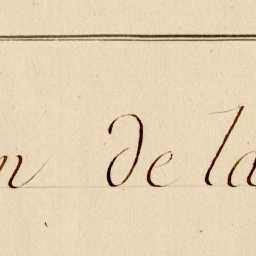 n de la